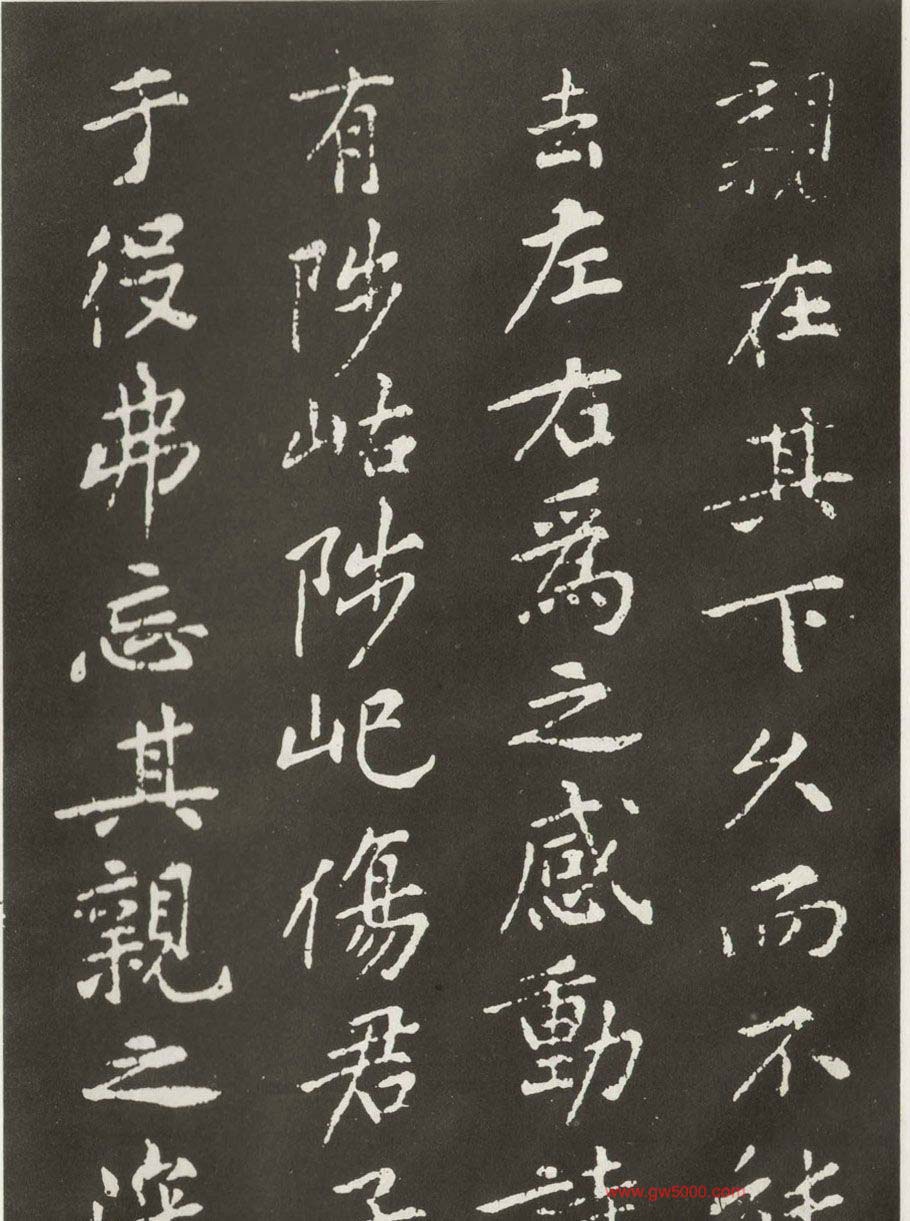 親在其下久而不能
去左右爲之感動詩
有陟岵陟屺傷君子
于役弗忘其親之深
www.gw5000.com